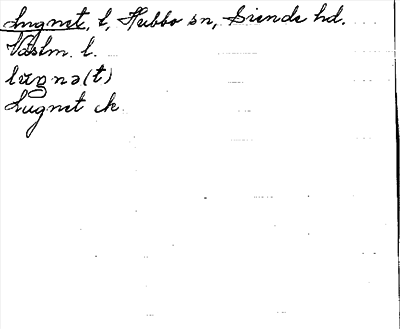 Lugnet, l, Hubbo sn, Siende hd.
Västm. l.
lɯgnə(t)
Lugnet ek